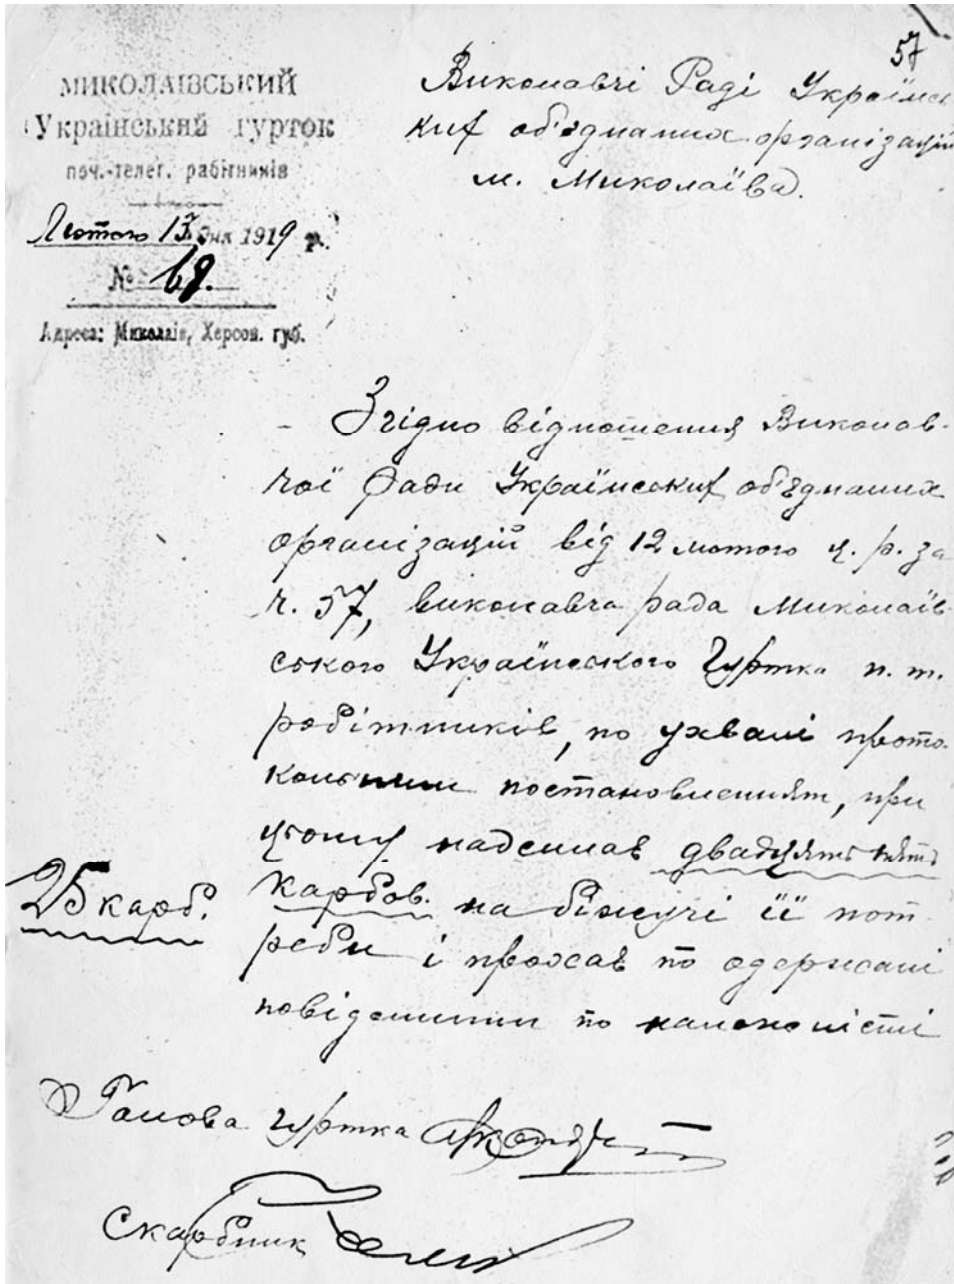 57
МИКОЛАІВСЬКИЙ
Український гурток
поч.-телег. рабітників
Лютого 13 дня 1919 р.
№ 68.
Адреса: Миколаів, Херсон. губ.
Виконавчі Раді Українсь
ких об'єднаних організацій
м. Миколаїва.
Згідно відношення Виконав-
чої Ради Українських об'єднаних
організацій від 12 лютого ц. р. за
ч. 57, виконавча рада Миколаїв
ського Українського Гуртка п. т.
робітників, по ухвалі прото-
кольним постановленням, при
цьому надсилає двадцять пять
25 карб.
карбов. на біжучі її пот
реби і прохає по одержані
повідомити по належністі
Голова гуртка
Скарбник